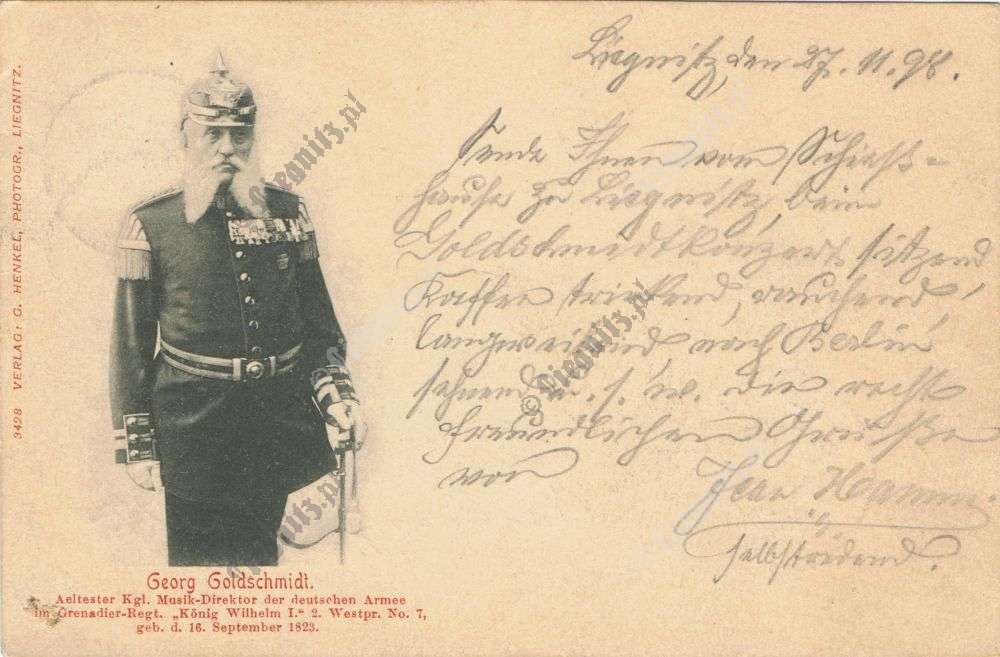 3428 VERLAG: G. HENKEL, PHOTOGR., LIEGNITZ.
Liegnitz, den 27. 11. 98.
Sende Ihnen vom Schieß-
hause zu Liegnitz, beim
Goldschmidtkonzert sitzend
Kaffee trinkend, rauchend,
langweilend, nach Berlin
sehnend u. s. w. die recht
freundlichen Grüße
von Jean Hamm
selbstredend.
Georg Goldschmidt.
Aeltester Kgl. Musik-Direktor der deutschen Armee
im Grenadier-Regt. „König Wilhelm I.“ 2. Westpr. No. 7,
geb. d. 16. September 1823.
© Liegnitz.pl
© Liegnitz.pl
Liegnitz.pl